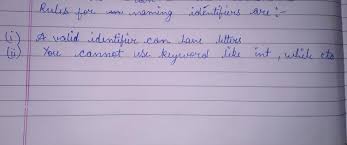 Rules for naming identifiers are :-
(i) A valid identifier can have letters
(ii) You cannot use keyword like int, while etc